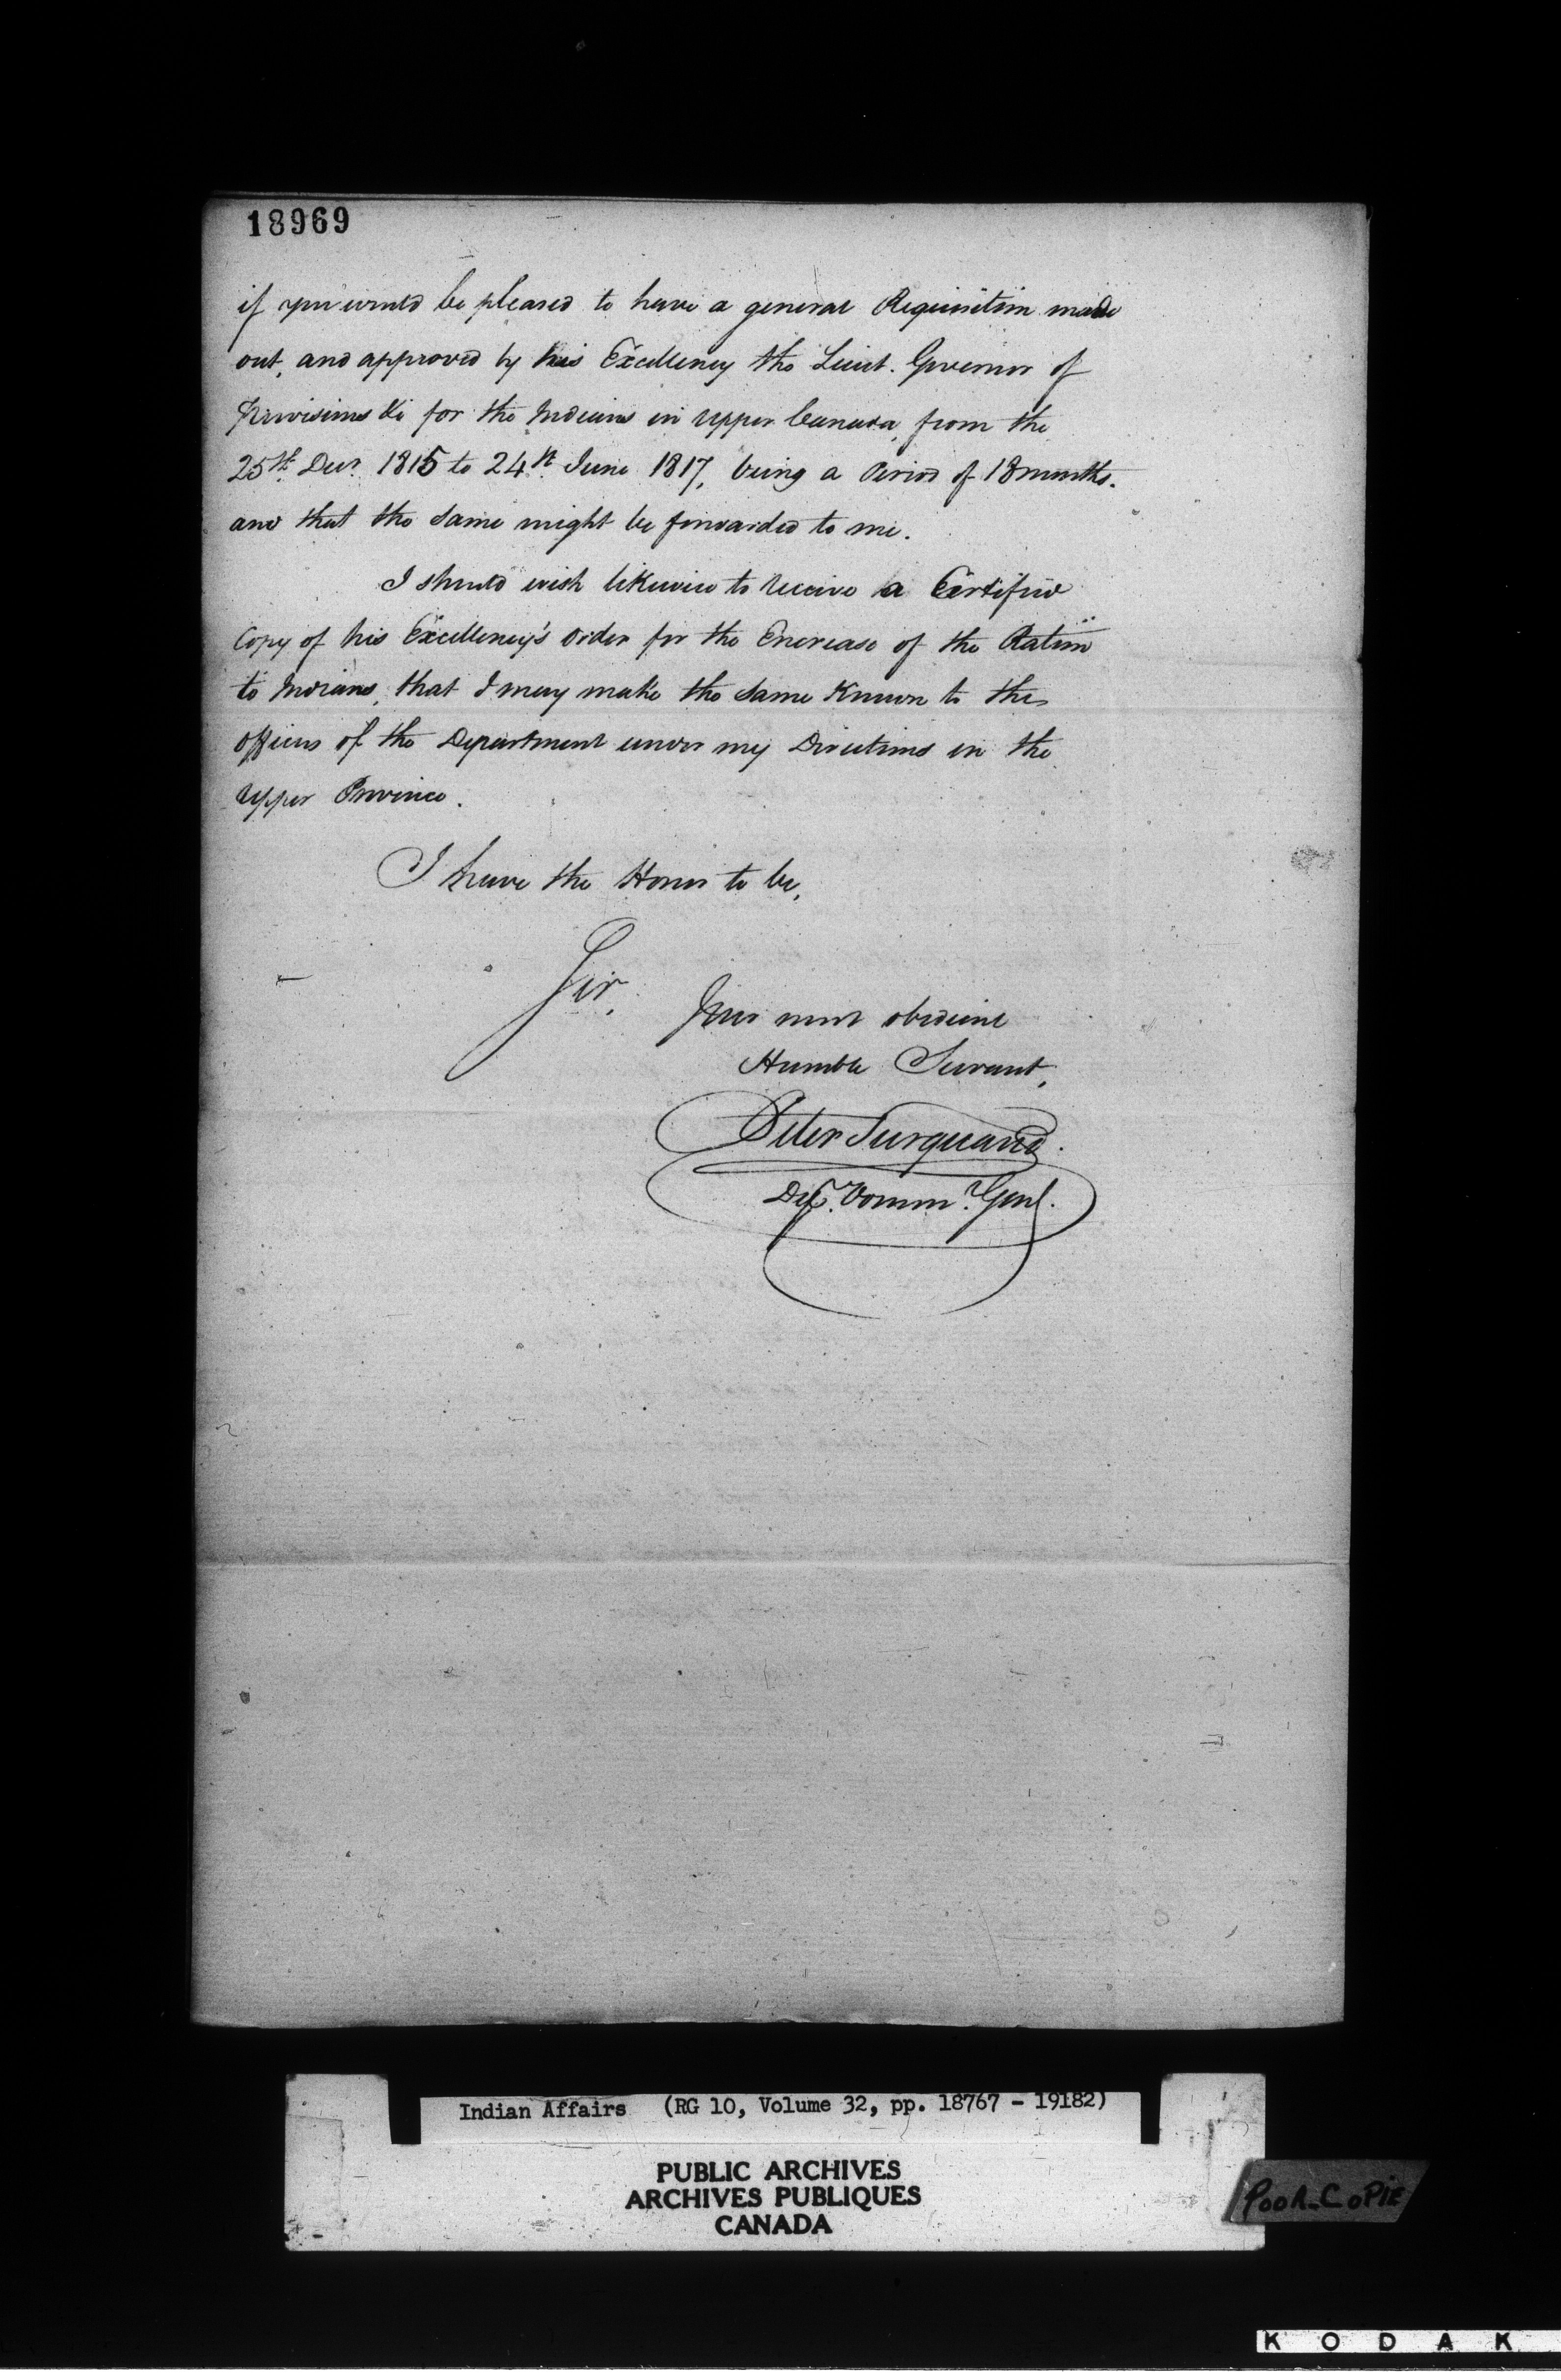 18969
if you would be pleased to have a general Requisition made
out, and approved by his Excellency the Lieut. Governor of
Provisions &c for the Indians in Upper Canada, from the
25th Decr. 1815 to 24th June 1817, being a Period of 18 months.
and that the same might be forwarded to me.
I should wish likewise to receive a Certified
Copy of his Excellency's order for the Encrease of the Ration
to Indians, that I may make the same Known to the
officers of the Department under my Directions in the
Upper Province.
I have the Honor to be,
Sir,
Your most obedient
Humble Servant,
Peter Turquand.
Dy. Comm. Genl.
Indian Affairs (RG 10, Volume 32, pp. 18767 - 19182)
PUBLIC ARCHIVES
ARCHIVES PUBLIQUES
CANADA
POOR COPIE
K O D A K